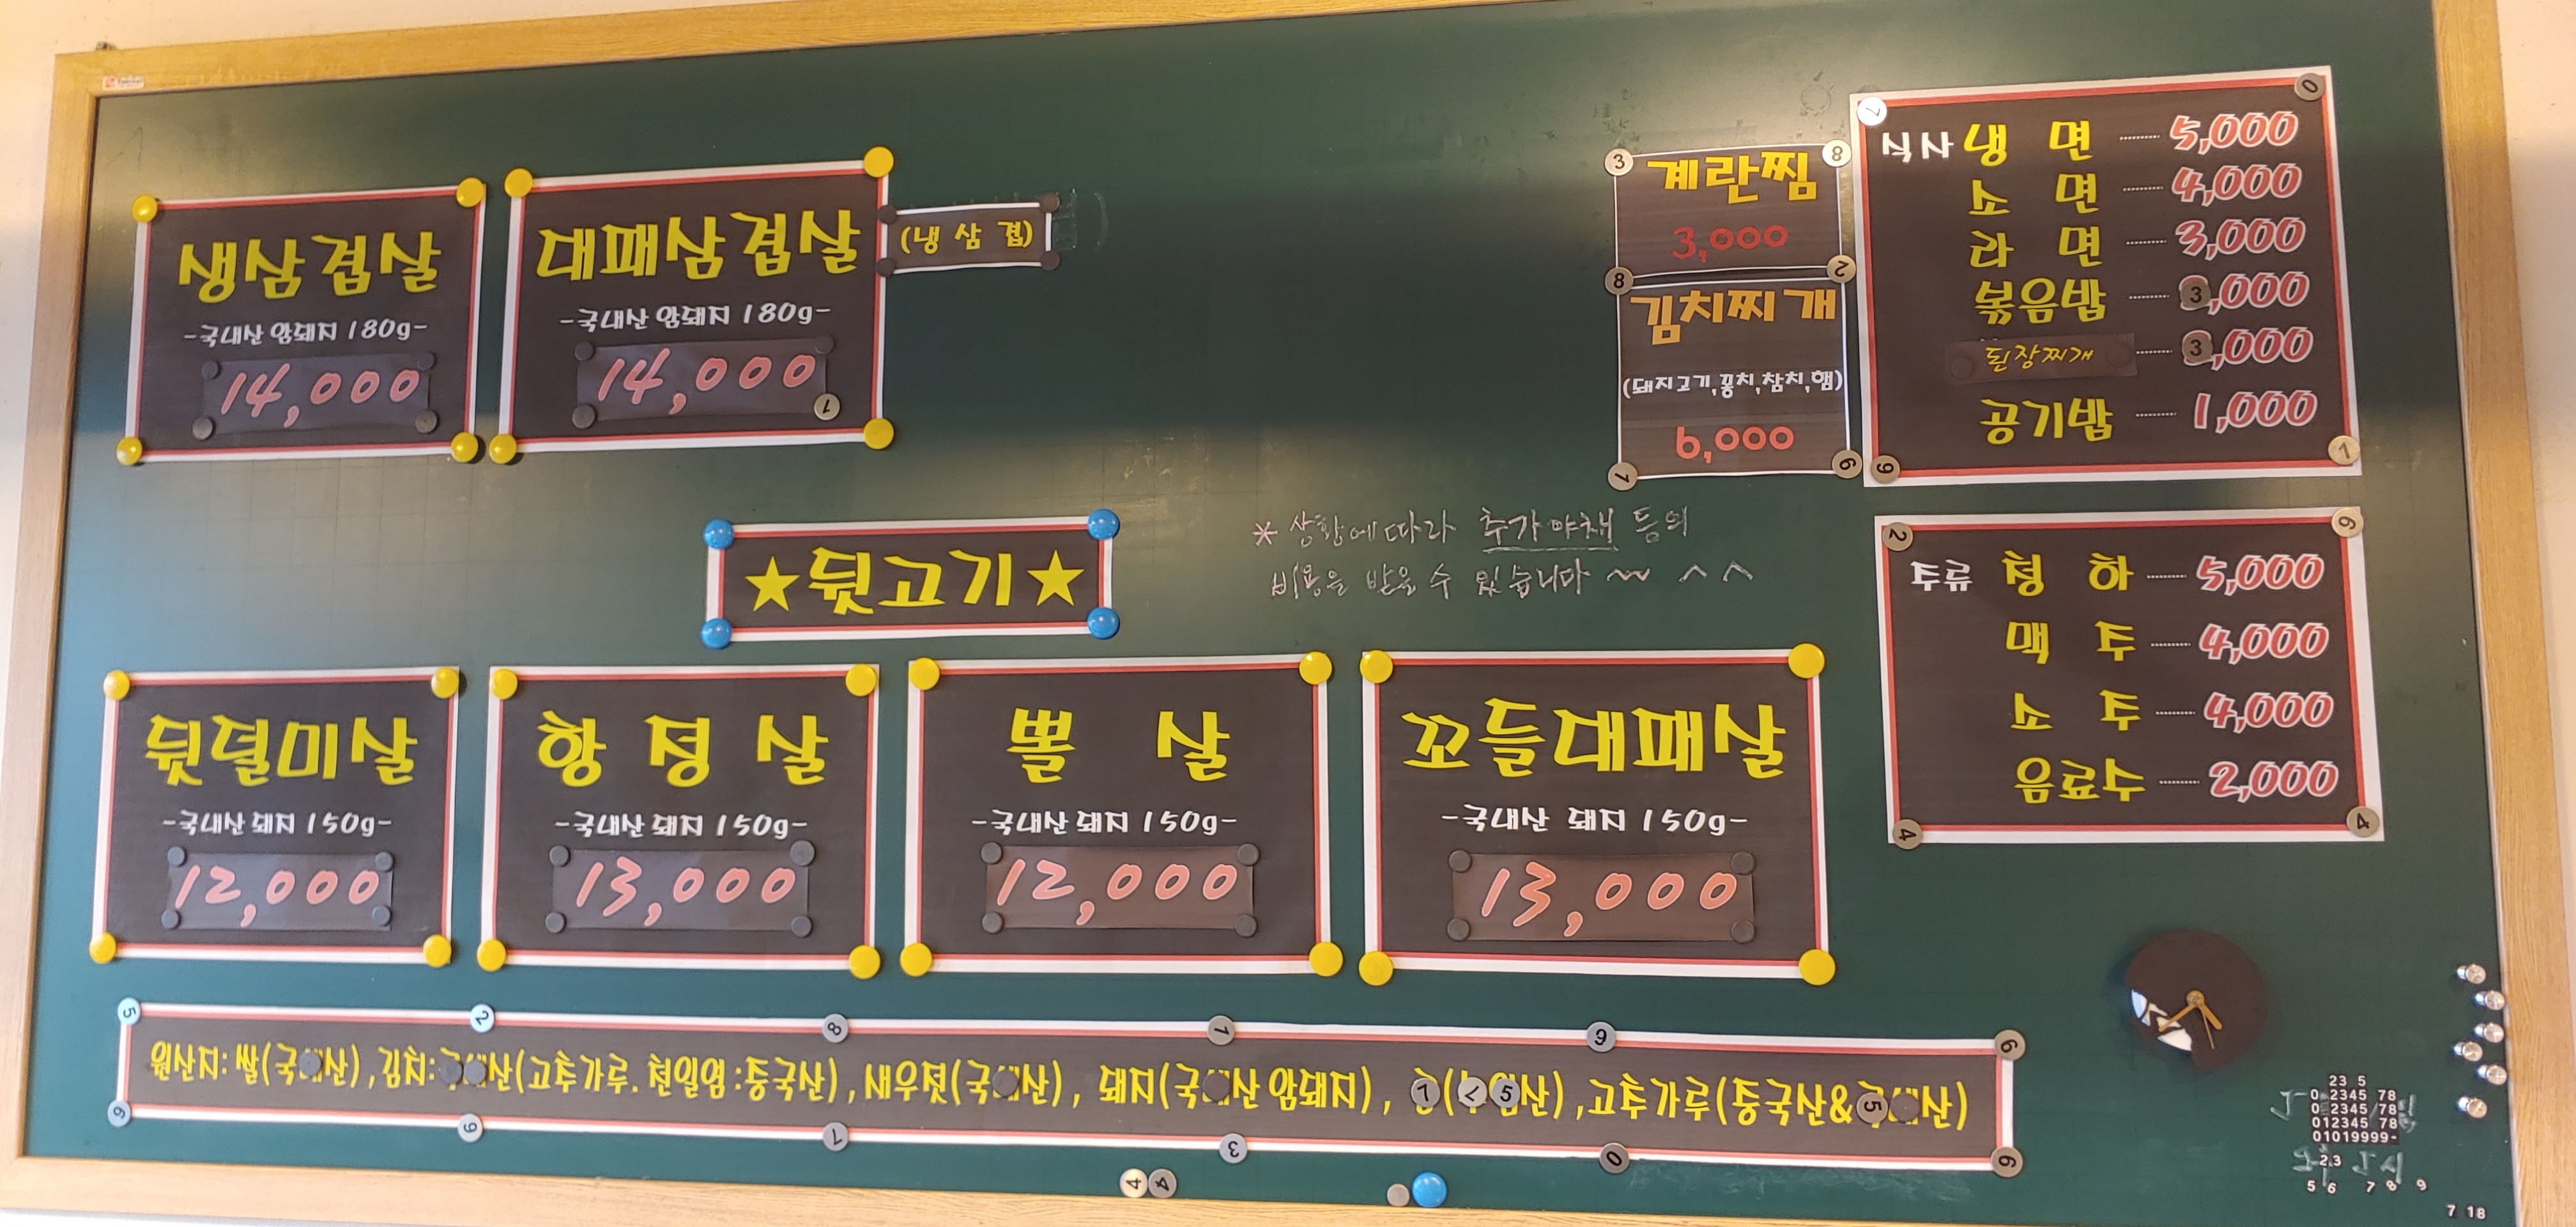 생삼겹살
-국내산 암돼지 180g-
14,000
대패삼겹살
-국내산 암돼지 180g-
14,000
(냉삼겹)
계란찜
3,000
김치찌개
(돼지고기,꽁치,참치,햄)
6,000
식사 냉 면 5,000
소 면 4,000
라 면 3,000
볶음밥 3,000
된장찌개 3,000
공기밥 1,000
★뒷고기★
* 상황에따라 추가야채 등의
비용을 받을 수 있습니다 ~ ^ ^
주류 청 하 5,000
맥 주 4,000
소 주 4,000
음료수 2,000
뒷덜미살
-국내산 돼지 150g-
12,000
항 정 살
-국내산 돼지 150g-
13,000
뽈 살
-국내산 돼지 150g-
12,000
꼬들대패살
-국내산 돼지 150g-
13,000
원산지: 쌀(국내산), 김치:국내산(고추가루. 천일염:중국산), 새우젓(국내산), 돼지(국내산 암돼지), 고추가루(중국산&국내산)
23 5
0 2345 78
0 2345 78
012345 78
01019999-
23
5 6 7 8 9
7 18